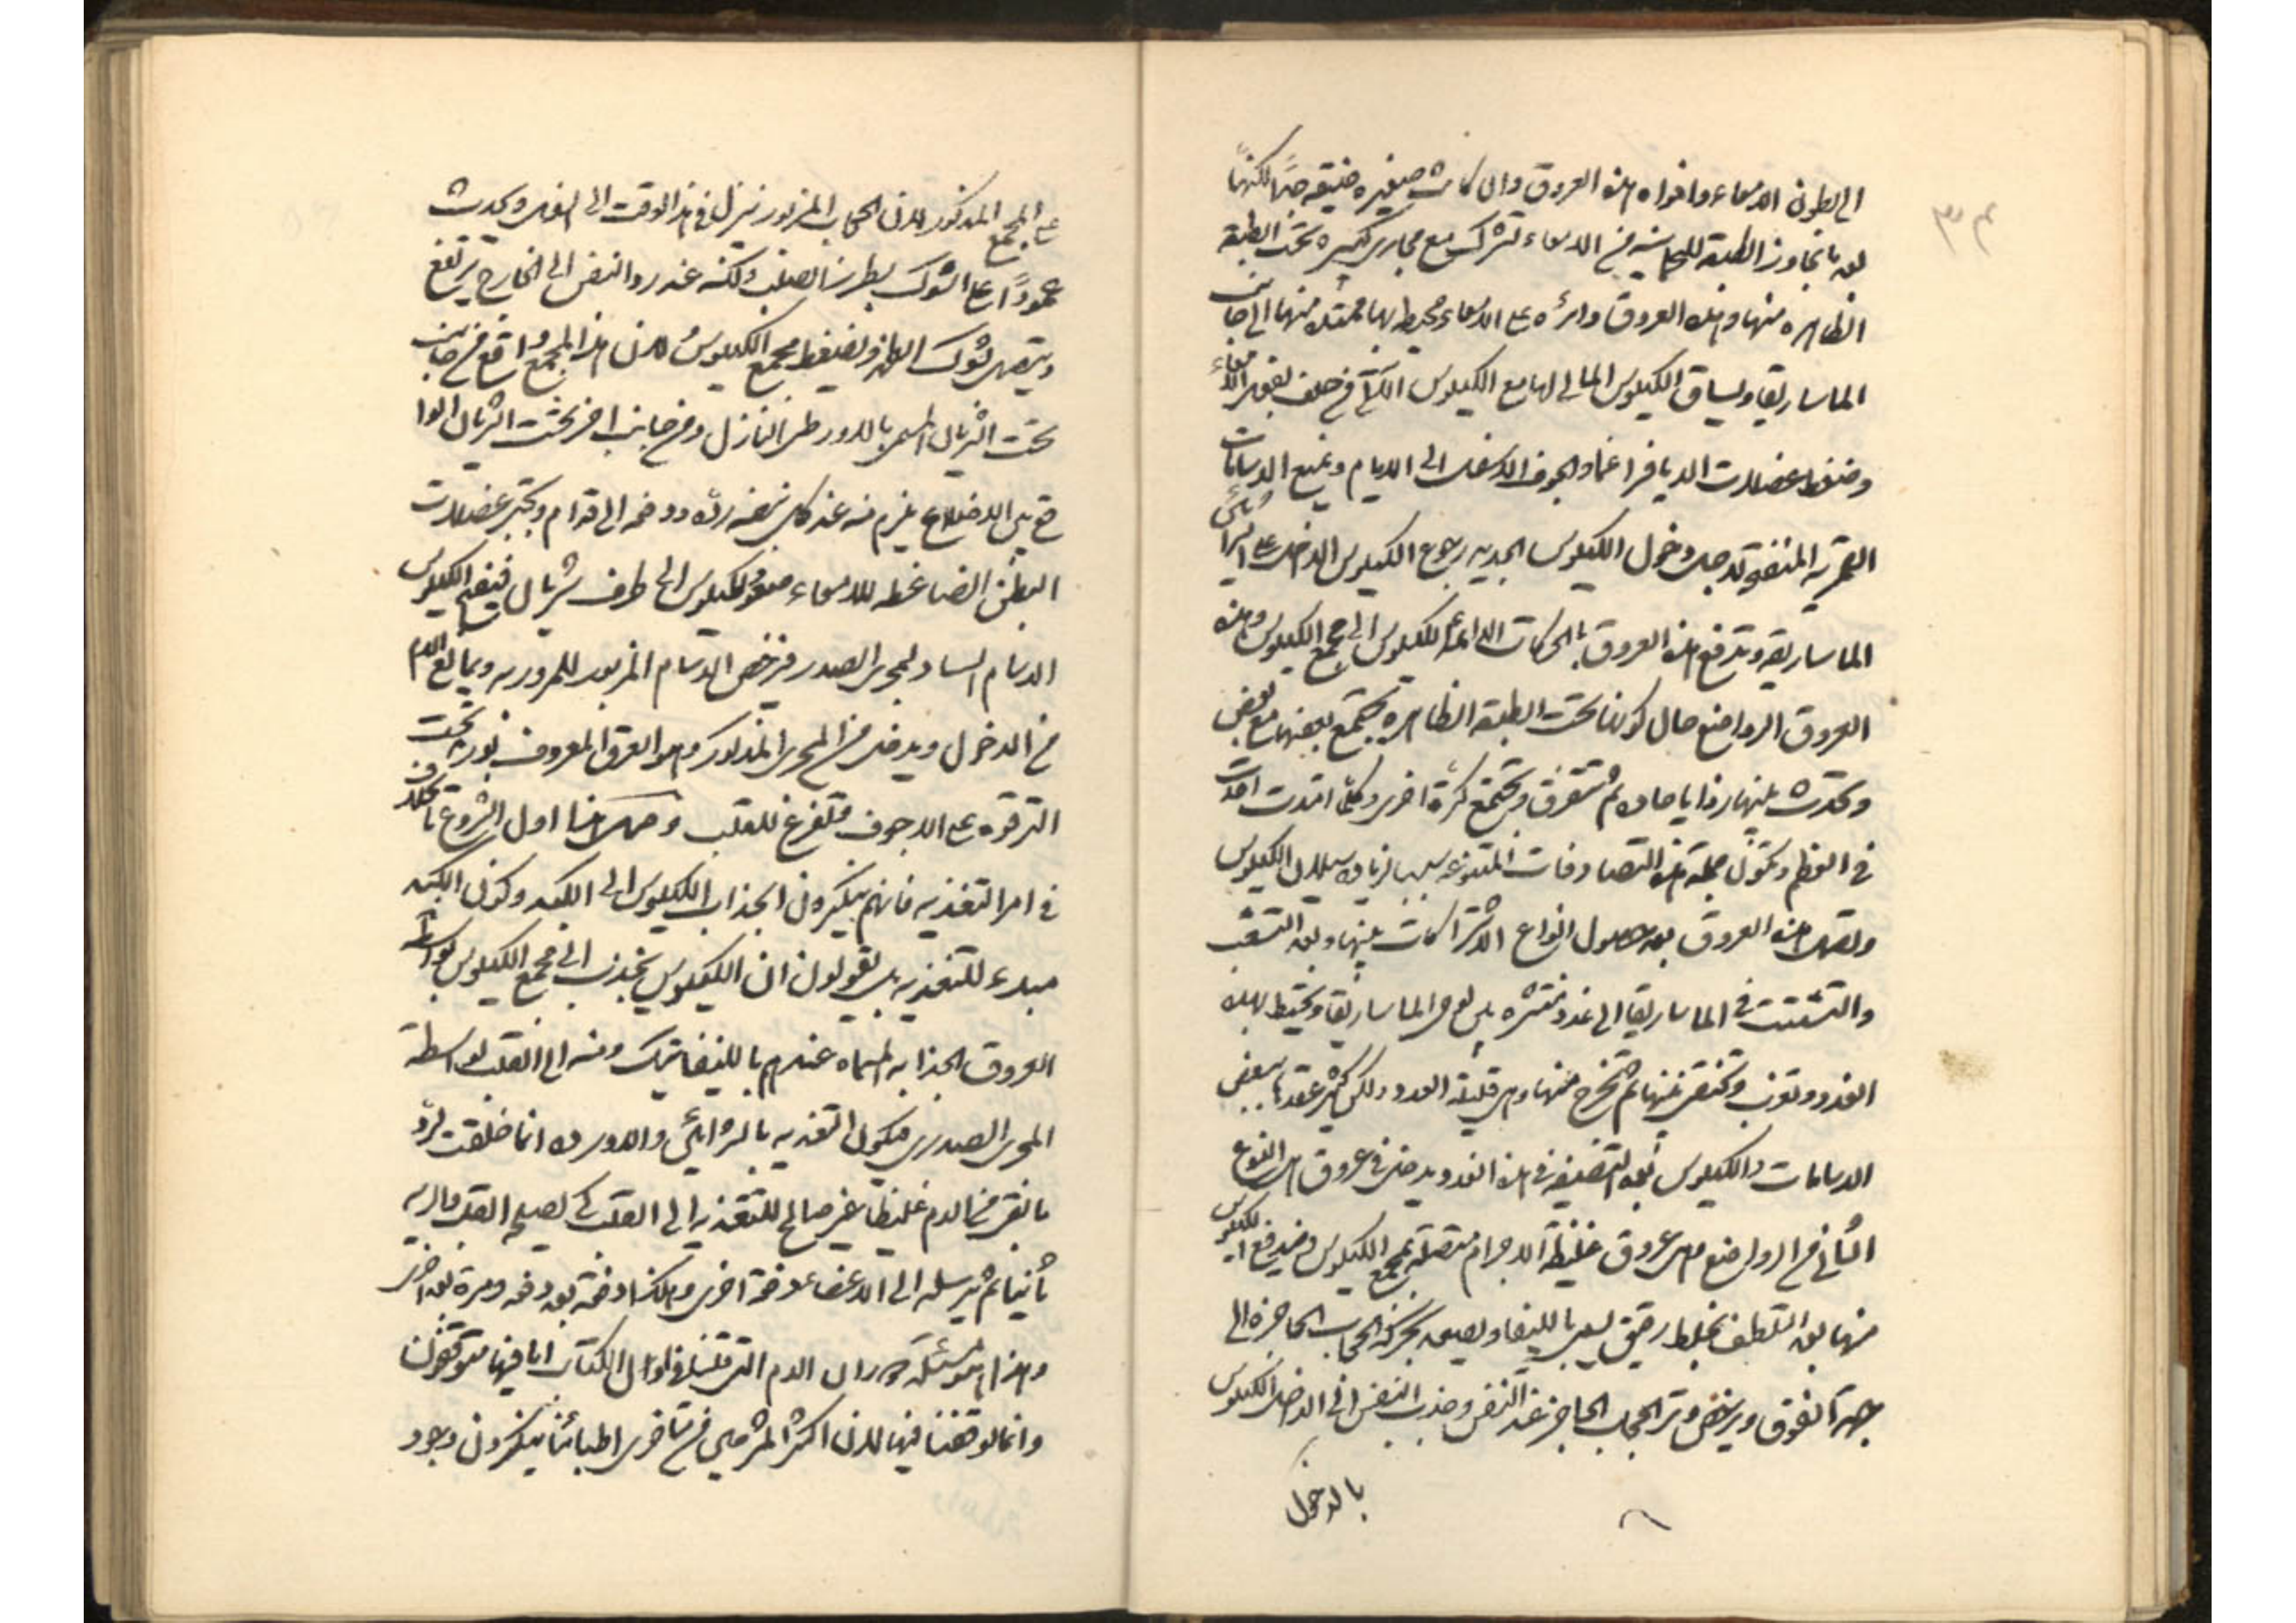 الى بطون الامعاء وافواه هذه العروق وان كانت صغيره ضيقه جدًا لكنها
بعد ما تجاوز الطبقة من الامعاء تشرك مع مجارى كثيره تحت الطبقة
الظاهره منها وهذه العروق دائره على الامعاء محيطة بها ممتده منها الى جانب
الماساريقا ويساق الكيلوس المالى لها مع الكيلوس الآتى من خلف بقهر الامعاء
وضغط عضلات الديافراغما والجوف الاسفل الى الامام وتمنع الدسامات
القمريه المنفتحة لاجل دخول الكيلوس الجديد رجوع الكيلوس الداخل على
الماساريقه وتدفع هذه العروق بالحركات الدافعه للكيلوس الى مجمع الكيلوس وهذه
العروق الرواضع حال كونها تحت الطبقة الظاهرة تجتمع بعضها مع بعض
وتحدث بينها زوايا حاده ثم تتفرق وتجتمع كرة اخرى وكلما امتدت اخذت
فى العظم وتكون جملة هذه التصادفات المتنوعه سببا لزياده سيلان الكيلوس
وتصل هذه العروق بعد حصول انواع الاشتراكات بينها وبعد التشعب
والتشتت فى الماساريقا الى غدد منتشره بين لوحى الماساريقا وتختلط بهذه
الغدد وتخرج منها وهى قليلة العدد ولكن كثير عقدها ببعض
الدسامات والكيلوس بعد التصفية فى هذه الغدد يدخل فى عروق هى النوع
الثانى من الرواضع وهى عروق غليظة الاجرام متصلة بمجمع الكيلوس فيندفع الكيلوس
منها بعد التلطف بخلط رقيق يسمى بالليمفا ويصعد بحركة الحجاب الحاجز الى
جهة الفوق ويرتخى وتر الحجاب الحاجز عند التنفس وجذب النفس الى الداخل الكيلوس
بالدخول
على المجمع المذكور لان الحجاب المزبور ينزل فى هذا الوقت الى اسفل ويحدث
عمودًا على الشوك بطرف الصلب ولكنه عند رد النفس الى الخارج يرتفع
ويتصل بشوك الصلب ويضغط مجمع الكيلوس لان هذا المجمع واقع من جانب
تحت الشريان المسمى بالاورطى النازل ومن جانب اخر تحت الشريان
بين الاضلاع يلزم منه عند كل نبضة رده ودفعه الى قدام وتجبر عضلات
البطن الضاغطه للامعاء صعود الكيلوس الى طرف شريان فيفتح الكيلوس
الدسام الساد لمجرى الصدر فيرخص الدسام المزبور للمرور به ويمانع الدم
من الدخول ويدخل من المجرى المذكور وهو العرق المعروف بوريد تحت
الترقوه على الاجوف فتفرغ للقلب وحصل هنا اول الشروع بالخلاف
فى امر التغذيه فانهم ينكرون انجذاب الكيلوس الى الكبد وكون الكبد
مبدء للتغذيه بل يقولون ان الكيلوس ينجذب الى مجمع الكيلوس بواسطة
العروق الجذابه المسماه عندهم بالليمفاتيك ومنه الى القلب بواسطة
المجرى الصدرى فيكون التغذيه بالشرائين والاورده انما خلقت لرد
ما بقى من الدم غليظا غير صالح للتغذيه الى القلب كى يصلحه القلب
ثانيا ثم يرسله الى الاعضاء دفعة اخرى وهكذا دفعة بعد دفعه ومرة بعد اخرى
وهذا هو مسئلة دوران الدم التى قلنا فى اوائل الكتاب انا فيها متوقفون
وانما توقفنا فيها لان اكثر المشرحين من متأخرى اطبائنا ينكرون وجود